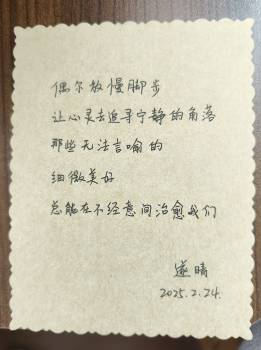 偶尔放慢脚步
让心灵去追寻宁静的角落
那些无法言喻的
细微美好
总能在不经意间治愈我们
遂晴
2025.2.24.